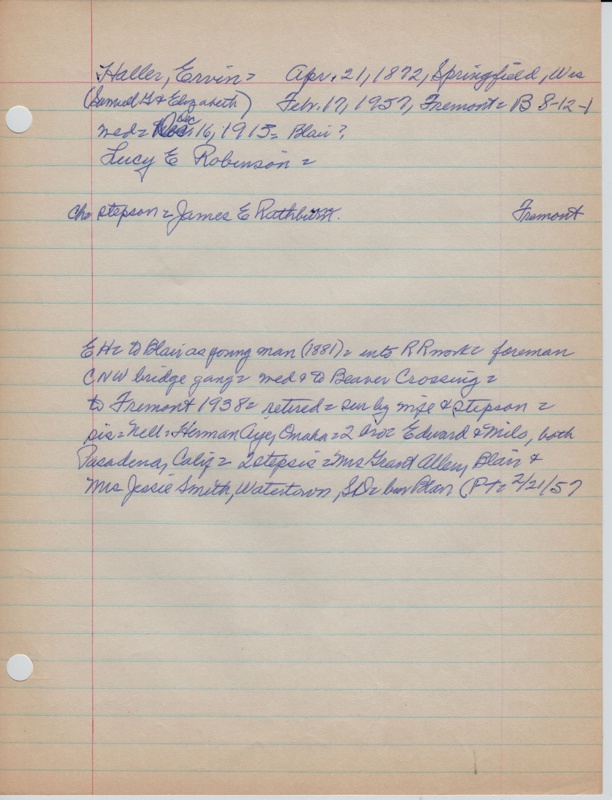 Haller, Ervin = Apr. 21, 1872, Springfield, Wis
(Samuel G & Elizabeth) Feb. 17, 1957, Fremont = B 8-12-1
wed = Dec 16, 1915 = Blair?
Lucy E Robinson =
Ch = stepson = James E Rathburn. Fremont
EH = to Blair as young man (1881) = into RR work = foreman
CNW bridge gang = wed & to Beaver Crossing =
to Fremont 1938 = retired = sur by wife & stepson =
sis = Nell = Herman Aye, Omaha = 2 bro = Edward & Milo, both
Pasadena, Calif = 2 stepsis = Mrs Grant Allen, Blair &
Mrs Jessie Smith, Watertown, SD = bur Blair (PT = 2/21/57